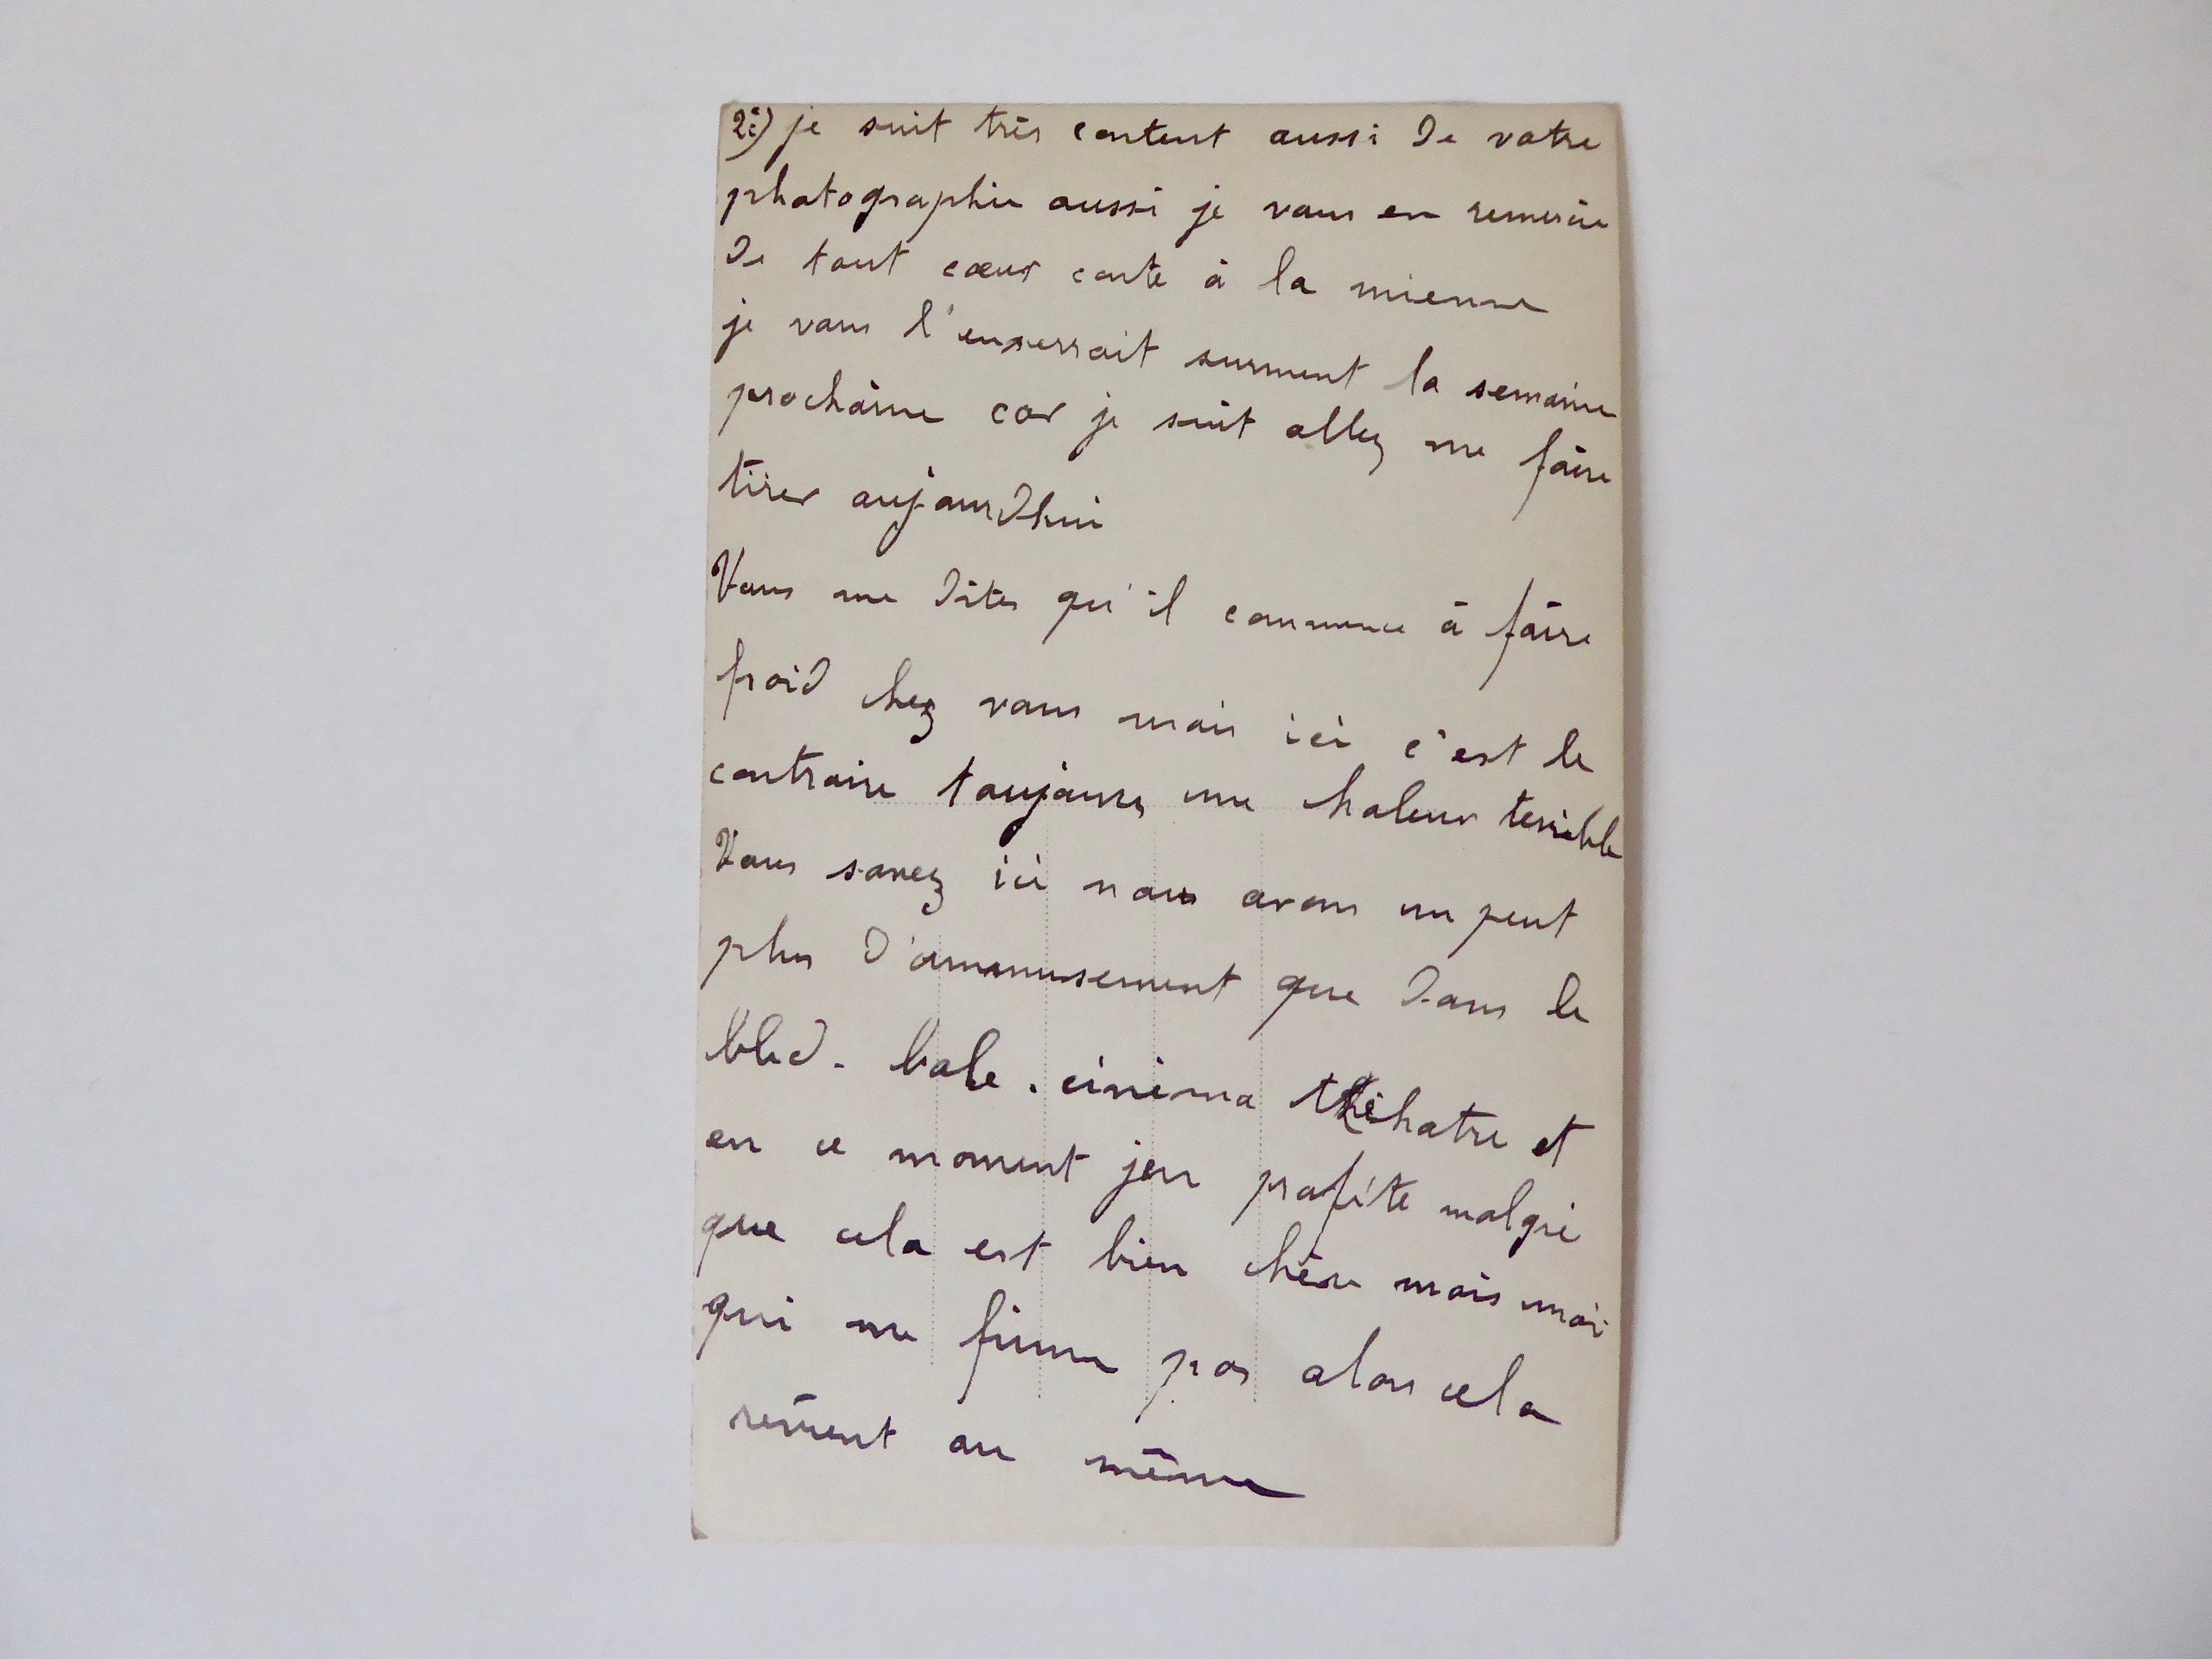 2è) je suit très content aussi de votre
photographie aussi je vous en remercie
de tout cœur conte à la mienne
je vous l'enverrait surment la semaine
prochaine car je suit allez me faire
tirer aujourdhui
Vous me dites qu'il commence à faire
froid chez vous mais ici c'est le
contraire toujours une chaleur terrible
Vous savez ici nous avons un peut
plus d'ammusement que dans le
bled - bale . cinéma théhatre et
en ce moment jen profite malgré
que cela est bien chère mais moi
qui ne fume pas alors cela
revient au même